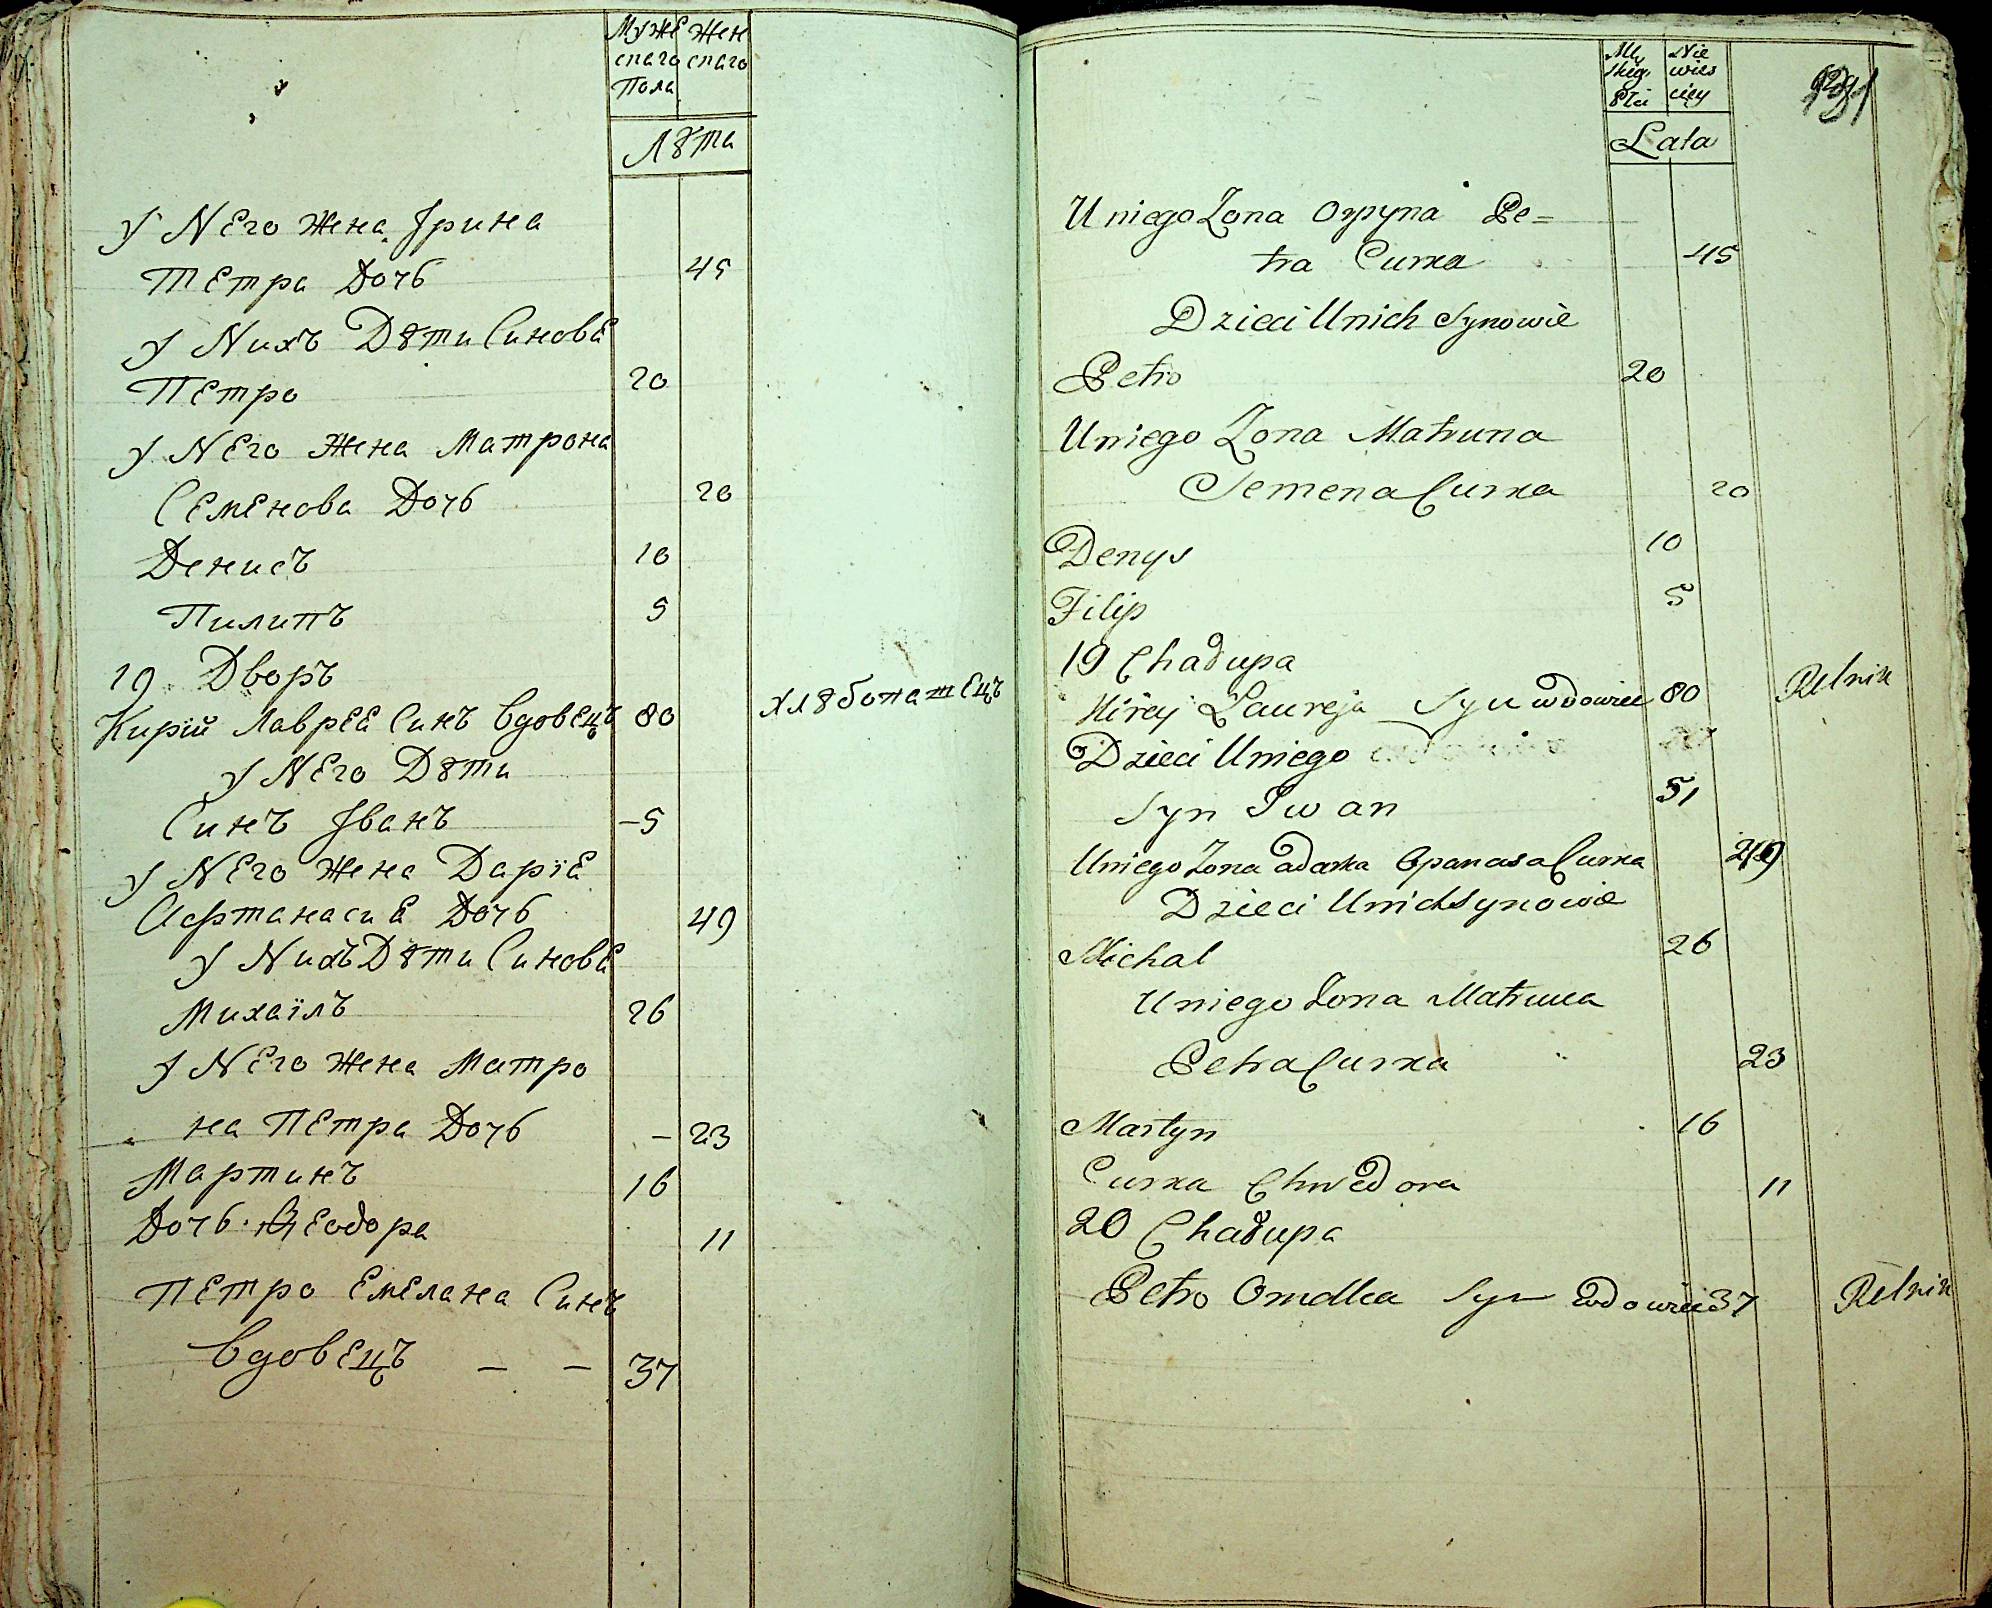 Муже Жен
скаго скаго
Пола
Лѣта
У Него Жена Ірина
Петра Дочь 45
У Нихъ Дѣти Синове
Петро 20
У Него Жена Матрона
Семенова Дочь 20
Денисъ 10
Пилипъ 5
19 Дворъ
Кирій Лаврее Синъ Вдовецъ 80 хлѣбопашецъ
У Него Дѣти
Синъ Іванъ –5
У Него Жена Даріе
Афтанасие Дочь 49
У Нихъ Дѣти Синове
Михаілъ 26
У Него Жена Матро
на Петра Дочь – 23
Мартинъ 16
Дочь Ѳеодора 11
Петро Емелана Синъ
Вдовецъ – – 37
Mę Nie
skiej wieś
Płci ciey
Lata
U niego Zona Orpyna Pe=
tra Curka 45
Dzieci Unich Synowie
Petro 20
Uniego Zona Matruna
Semena Curka 20
Denys 10
Filip 5
19 Chałupa
Kirey Laureja Syn wdowiec 80 Rolnik
Dzieci Uniego
Syn Iwan 51
Uniego Zona Odarka Opanasa Curka 49
Dzieci Unich Synowie
Michal 26
Uniego Zona Matruna
Petra Curka 23
Martyn 16
Curka Chwedora 11
20 Chałupa
Petro Omelka Syn wdowiec 37 Rolnik